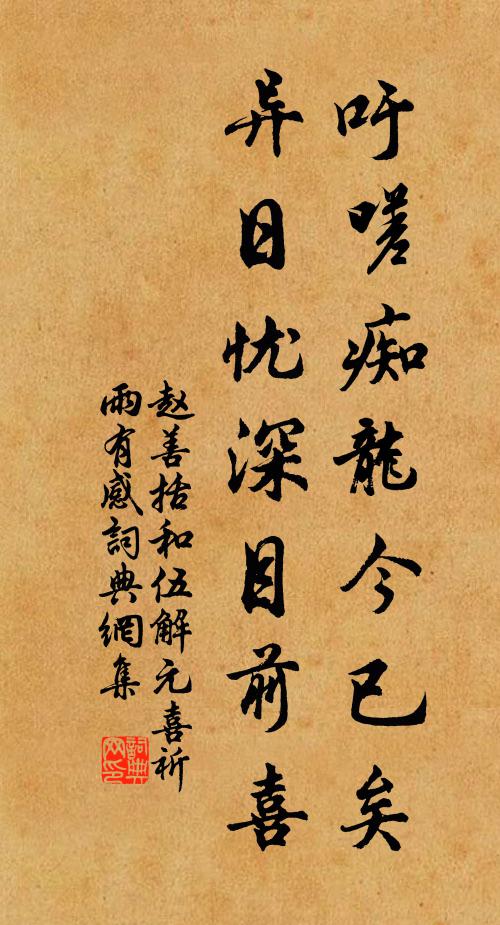 吁嗟痴龍今已矣
异日忧深目前喜
赵善括和伍解元喜祈
雨有感詞典網集
詞典网印